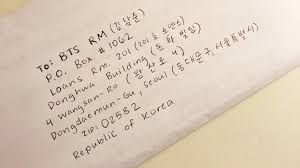 TO: BTS RM (김남준)
P.O. Box #1062
Loans Rm. 201 (201호 로앤스)
Donghwa Building (동화빌딩)
4 wangsan-Ro (왕산로 4)
Dongdaemun-Gu, Seoul (동대문구, 서울특별시)
ZIP: 02582
Republic of Korea